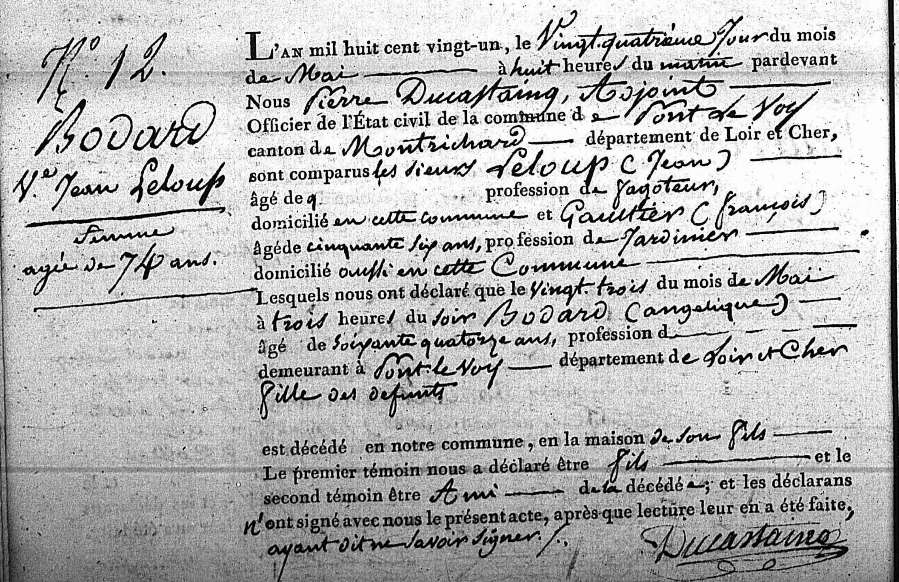 N.° 12.
Bodard
V.e Jean Leloup
femme
agée de 74 ans.
L'AN mil huit cent vingt-un, le Vingt-quatrième Jour du mois
de Mai à huit heures du matin pardevant
Nous Pierre Ducastaing, Adjoint
Officier de l'État civil de la commune de Pont le Voy
canton de Montrichard département de Loir et Cher,
sont comparus les sieurs Leloup (Jean)
âgé de q profession de fagoteur,
domicilié en cette commune et Gaultier (françois)
âgé de cinquante six ans, profession de Jardinier
domicilié aussi en cette Commune
Lesquels nous ont déclaré que le Vingt-trois du mois de Mai
à trois heures du soir Bodard (angelique)
âgé de soixante quatorze ans, profession d
demeurant à Pont-le-Voy département de Loir et Cher
fille des defunts
est décédé en notre commune, en la maison de son fils
Le premier témoin nous a déclaré être fils et le
second témoin être Ami de la décédée; et les déclarans
n'ont signé avec nous le présent acte, après que lecture leur en a été faite,
ayant dit ne savoir signer ./.
Ducastaing